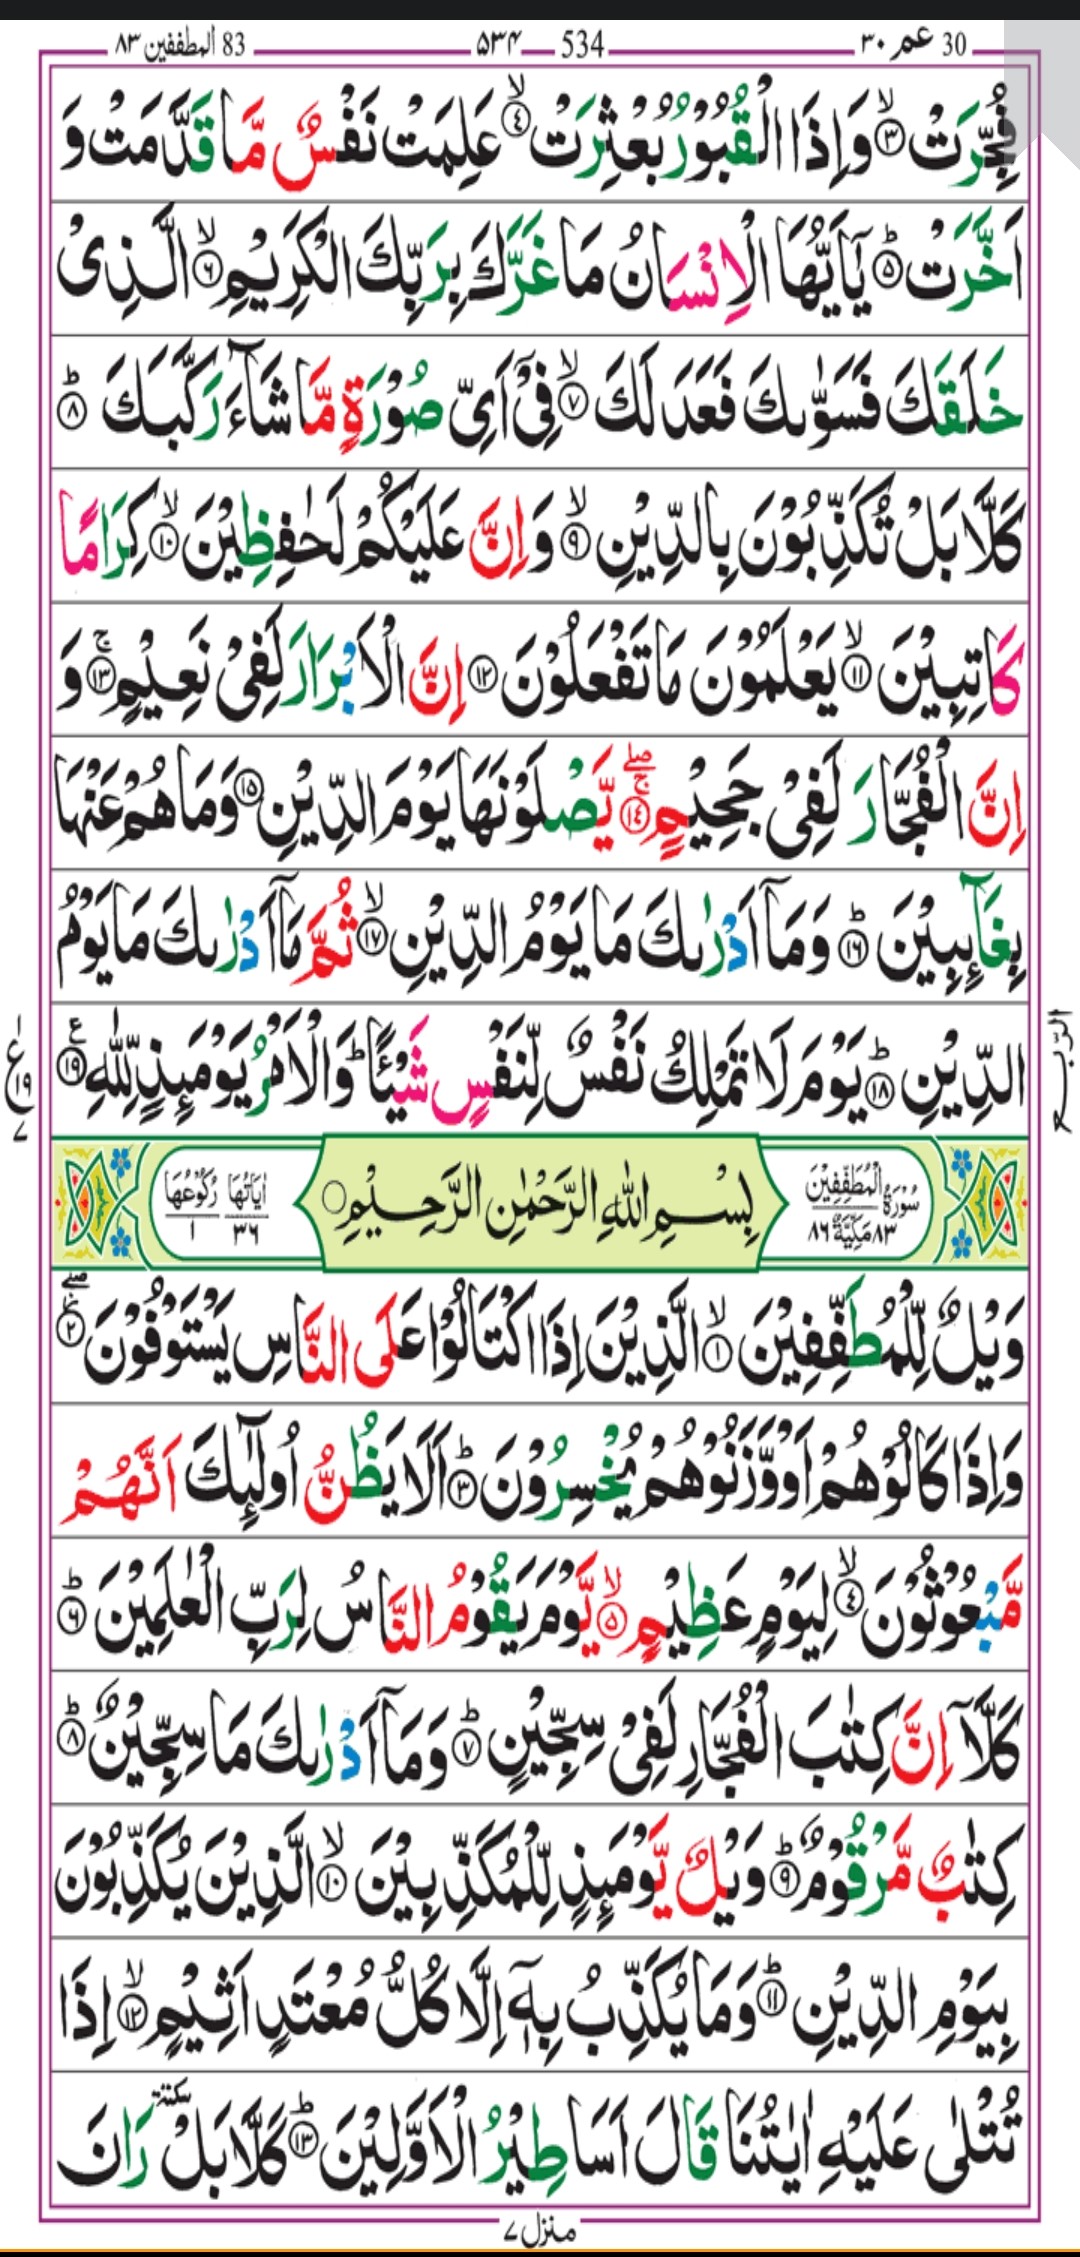 30 عم ۳۰
534 ۵۳۴
83 المطففين ۸۳
فُجِّرَتْ ۙ‏﴿۳﴾ وَاِذَا الْقُبُوْرُ بُعْثِرَتْ ۙ‏﴿۴﴾ عَلِمَتْ نَفْسٌ مَّا قَدَّمَتْ وَ
اَخَّرَتْ ؕ‏﴿۵﴾ يٰۤاَيُّهَا الْاِنْسَانُ مَا غَرَّكَ بِرَبِّكَ الْكَرِيْمِ ۙ‏﴿۶﴾ الَّذِىْ
خَلَقَكَ فَسَوّٰٮكَ فَعَدَلَكَ ۙ‏﴿۷﴾ فِىْۤ اَىِّ صُوْرَةٍ مَّا شَآءَ رَكَّبَكَ ؕ‏﴿۸﴾
كَلَّا بَلْ تُكَذِّبُوْنَ بِالدِّيْنِ ۙ‏﴿۹﴾ وَاِنَّ عَلَيْكُمْ لَحٰفِظِيْنَ ۙ‏﴿۱۰﴾ كِرَامًا
كَاتِبِيْنَ ۙ‏﴿۱۱﴾ يَعْلَمُوْنَ مَا تَفْعَلُوْنَ ﴿۱۲﴾ اِنَّ الْاَبْرَارَ لَفِىْ نَعِيْمٍ ۚ‏﴿۱۳﴾ وَ
اِنَّ الْفُجَّارَ لَفِىْ جَحِيْمٍ ۚۖ‏﴿۱۴﴾ يَّصْلَوْنَهَا يَوْمَ الدِّيْنِ ﴿۱۵﴾ وَمَا هُمْ عَنْهَا
بِغَآٮِٕبِيْنَ ؕ‏﴿۱۶﴾ وَمَاۤ اَدْرٰٮكَ مَا يَوْمُ الدِّيْنِ ۙ‏﴿۱۷﴾ ثُمَّ مَاۤ اَدْرٰٮكَ مَا يَوْمُ
الدِّيْنِ ؕ‏﴿۱۸﴾ يَوْمَ لَا تَمْلِكُ نَفْسٌ لِّنَفْسٍ شَيْئًا ؕ وَالْاَمْرُ يَوْمَٮِٕذٍ لِّلّٰهِ ﴿۱۹﴾ ع
الربع
ع ۱ ۱۹ ۷
سُوْرَةُ الْمُطَفِّفِيْنَ ۸۳ مَكِّيَّةٌ ۸۶
بِسْمِ اللّٰهِ الرَّحْمٰنِ الرَّحِيْمِ
اٰيَاتُهَا ۳۶ رُكُوْعُهَا ۱
وَيْلٌ لِّلْمُطَفِّفِيْنَ ۙ‏﴿۱﴾ الَّذِيْنَ اِذَا اكْتَالُوْا عَلَى النَّاسِ يَسْتَوْفُوْنَ ۖ‏﴿۲﴾
وَاِذَا كَالُوْهُمْ اَوْ وَّزَنُوْهُمْ يُخْسِرُوْنَ ؕ‏﴿۳﴾ اَلَا يَظُنُّ اُولٰٓٮِٕكَ اَنَّهُمْ
مَّبْعُوْثُوْنَ ۙ‏﴿۴﴾ لِيَوْمٍ عَظِيْمٍ ۙ‏﴿۵﴾ يَّوْمَ يَقُوْمُ النَّاسُ لِرَبِّ الْعٰلَمِيْنَ ؕ‏﴿۶﴾
كَلَّاۤ اِنَّ كِتٰبَ الْفُجَّارِ لَفِىْ سِجِّيْنٍ ؕ‏﴿۷﴾ وَمَاۤ اَدْرٰٮكَ مَا سِجِّيْنٌ ؕ‏﴿۸﴾
كِتٰبٌ مَّرْقُوْمٌ ؕ‏﴿۹﴾ وَيْلٌ يَّوْمَٮِٕذٍ لِّلْمُكَذِّبِيْنَ ۙ‏﴿۱۰﴾ الَّذِيْنَ يُكَذِّبُوْنَ
بِيَوْمِ الدِّيْنِ ؕ‏﴿۱۱﴾ وَمَا يُكَذِّبُ بِهٖۤ اِلَّا كُلُّ مُعْتَدٍ اَثِيْمٍ ۙ‏﴿۱۲﴾ اِذَا
تُتْلٰى عَلَيْهِ اٰيٰتُنَا قَالَ اَسَاطِيْرُ الْاَوَّلِيْنَ ؕ‏﴿۱۳﴾ كَلَّا بَلْ سكتة رَانَ
منزل ۷